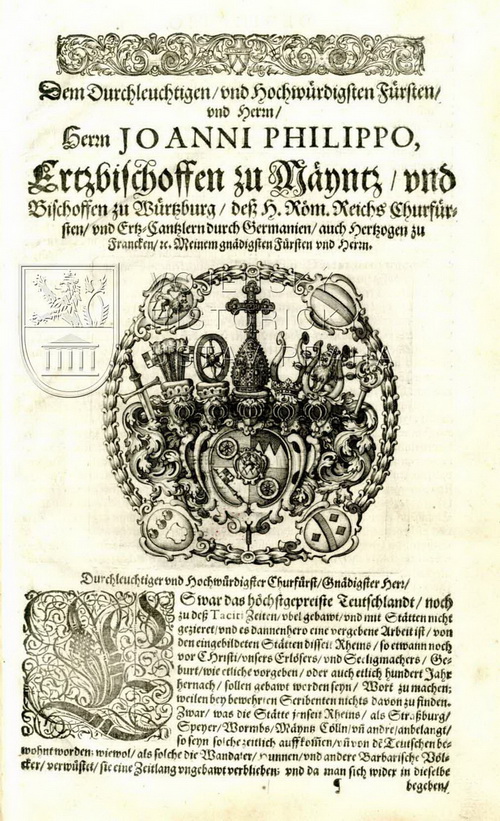 Dem Durchleuchtigen/ vnd Hochwürdigsten Fürsten/
vnd Herrn/
Herrn JOANNI PHILIPPO,
Ertzbischoffen zu Mäyntz/ vnd
Bischoffen zu Würtzburg/ deß H. Röm. Reichs Churfür-
sten/ vnd Ertz-Cantzlern durch Germanien/ auch Hertzogen zu
Francken/ ꝛc. Meinem gnädigsten Fürsten vnd Herrn.
HISTORICK
Durchleuchtiger vnd Hochwürdigster Churfürst/ Gnädigster Herr/
ES war das höchstgepreiste Teutschlandt/ noch
zu deß Taciti Zeiten/ vbel gebawt/ vnd mit Stätten nicht
gezieret/ vnd es dannenhero eine vergebene Arbeit ist/ von
den eingebildeten Stätten disseit Rheins/ so etwann noch
vor CHristi/ vnsers Erlösers/ vnd Seeligmachers/ Ge-
burt/ wie etliche vorgeben/ oder auch etlich hundert Jahr
hernach/ sollen gebawt worden seyn/ Wort zu machen;
weilen bey bewehrten Scribenten nichts davon zu finden.
Zwar/ was die Stätte jenseit Rheins/ als Straßburg/
Speyer/ Wormbs/ Mäyntz Cölln/ vñ andre/ anbelangt/
so seyn solche zeitlich auffkom̃en/ vñ von dẽ Teutschen be-
wohnt worden; wiewol/ als solche die Wandaler/ Hunnen/ vnd andere Barbarische Völ-
cker/ verwüstet/ sie eine Zeitlang vngebawt verblieben; vnd da man sich wider in dieselbe
¶ begeben/